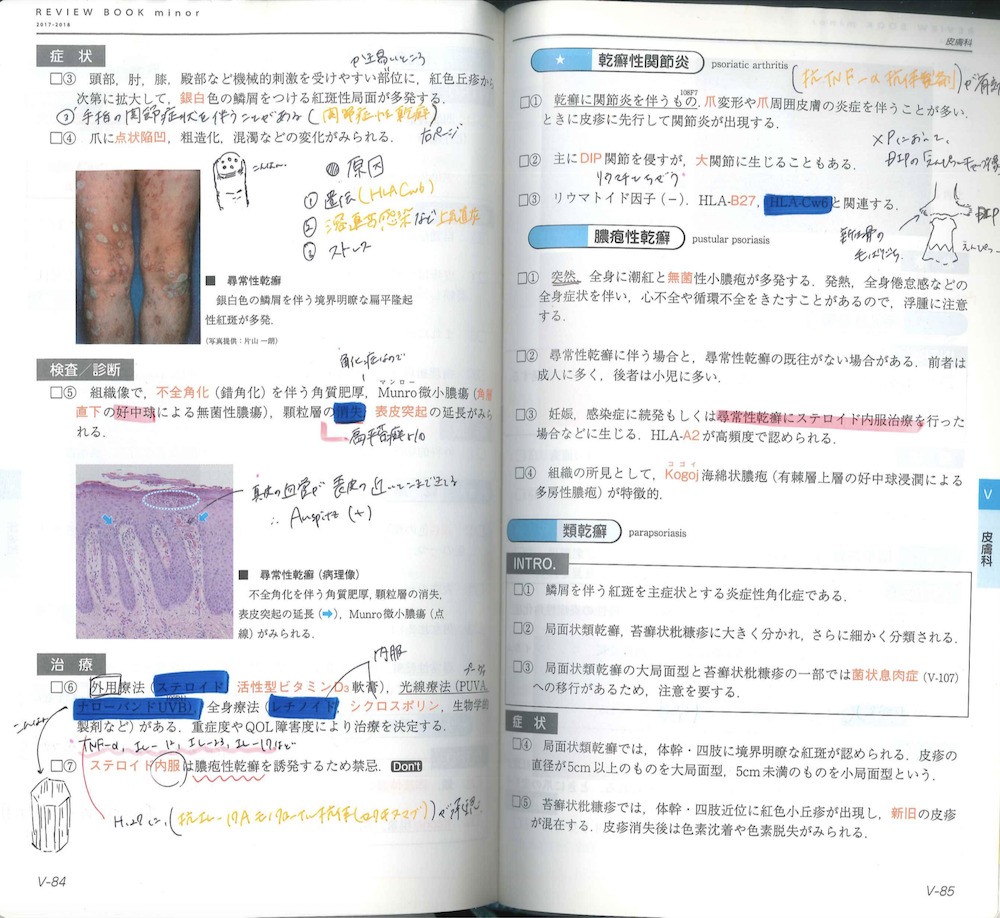 REVIEW BOOK minor
2017-2018
症 状
□③ 頭部，肘，膝，殿部など機械的刺激を受けやすい部位に，紅色丘疹から
次第に拡大して，銀白色の鱗屑をつける紅斑性局面が多発する．
手指の関節症状を伴うことがある(関節症性乾癬)
□④ 爪に点状陥凹，粗造化，混濁などの変化がみられる．
右ページ
原因
① 遺伝(HLA Cw6)
② 溶連菌感染など上気道炎
③ ストレス
■ 尋常性乾癬
銀白色の鱗屑を伴う境界明瞭な扁平隆起
性紅斑が多発．
(写真提供：片山 一朗)
検査／診断
角化症なので
□⑤ 組織像で，不全角化（錯角化）を伴う角質肥厚，Munro微小膿瘍（角層
マンロー
直下の好中球による無菌性膿瘍），顆粒層の消失，表皮突起の延長がみら
れる．
真皮の血管が表皮の近いとこまで来てる
∴ Auspitz (+)
■ 尋常性乾癬（病理像）
不全角化を伴う角質肥厚，顆粒層の消失，
表皮突起の延長（➡），Munro微小膿瘍（点
線）がみられる．
治 療
内服
□⑥ 外用療法（ステロイド，活性型ビタミンD₃軟膏），光線療法（PUVA，
ナローバンドUVB），全身療法（レチノイド，シクロスポリン，生物学的
製剤など）がある．重症度やQOL障害度により治療を決定する．
TNF-α, IL-12, IL-23, IL-17など
□⑦ ステロイド内服は膿疱性乾癬を誘発するため禁忌． Don't
V-84
皮膚科
★ 乾癬性関節炎 psoriatic arthritis
(抗TNF-α抗体製剤)が有効
108F7
□① 乾癬に関節炎を伴うもの．爪変形や爪周囲皮膚の炎症を伴うことが多い．
ときに皮疹に先行して関節炎が出現する．
XPにおいて，
□② 主にDIP関節を侵すが，大関節に生じることもある．
リウマチとちがう
□③ リウマトイド因子（－）．HLA-B27，HLA-Cw6と関連する．
DIP
膿疱性乾癬 pustular psoriasis
□① 突然，全身に潮紅と無菌性小膿疱が多発する．発熱，全身倦怠感などの
全身症状を伴い，心不全や循環不全をきたすことがあるので，浮腫に注意
する．
□② 尋常性乾癬に伴う場合と，尋常性乾癬の既往がない場合がある．前者は
成人に多く，後者は小児に多い．
□③ 妊娠，感染症に続発もしくは尋常性乾癬にステロイド内服治療を行った
場合などに生じる．HLA-A2が高頻度で認められる．
コゴイ
□④ 組織の所見として，Kogoj海綿状膿疱（有棘層上層の好中球浸潤による
多房性膿疱）が特徴的．
V
皮膚科
類乾癬 parapsoriasis
INTRO.
□① 鱗屑を伴う紅斑を主症状とする炎症性角化症である．
□② 局面状類乾癬，苔癬状粃糠疹に大きく分かれ，さらに細かく分類される．
□③ 局面状類乾癬の大局面型と苔癬状粃糠疹の一部では菌状息肉症（V-107）
への移行があるため，注意を要する．
症 状
□④ 局面状類乾癬では，体幹・四肢に境界明瞭な紅斑が認められる．皮疹の
直径が5cm以上のものを大局面型，5cm未満のものを小局面型という．
□⑤ 苔癬状粃糠疹では，体幹・四肢近位に紅色小丘疹が出現し，新旧の皮疹
が混在する．皮疹消失後は色素沈着や色素脱失がみられる．
V-85